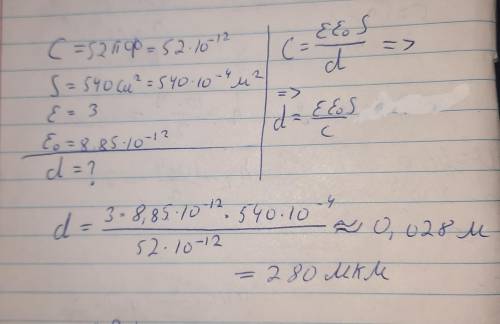 C = 52 пФ = 52·10⁻¹²
S = 540 см² = 540·10⁻⁴ м²
ε = 3
ε₀ = 8,85·10⁻¹²
d = ?
C = εε₀S/d =>
=>
d = εε₀S/c
d = 3·8,85·10⁻¹²·540·10⁻⁴/52·10⁻¹² ≈ 0,028 м
= 280 мкм